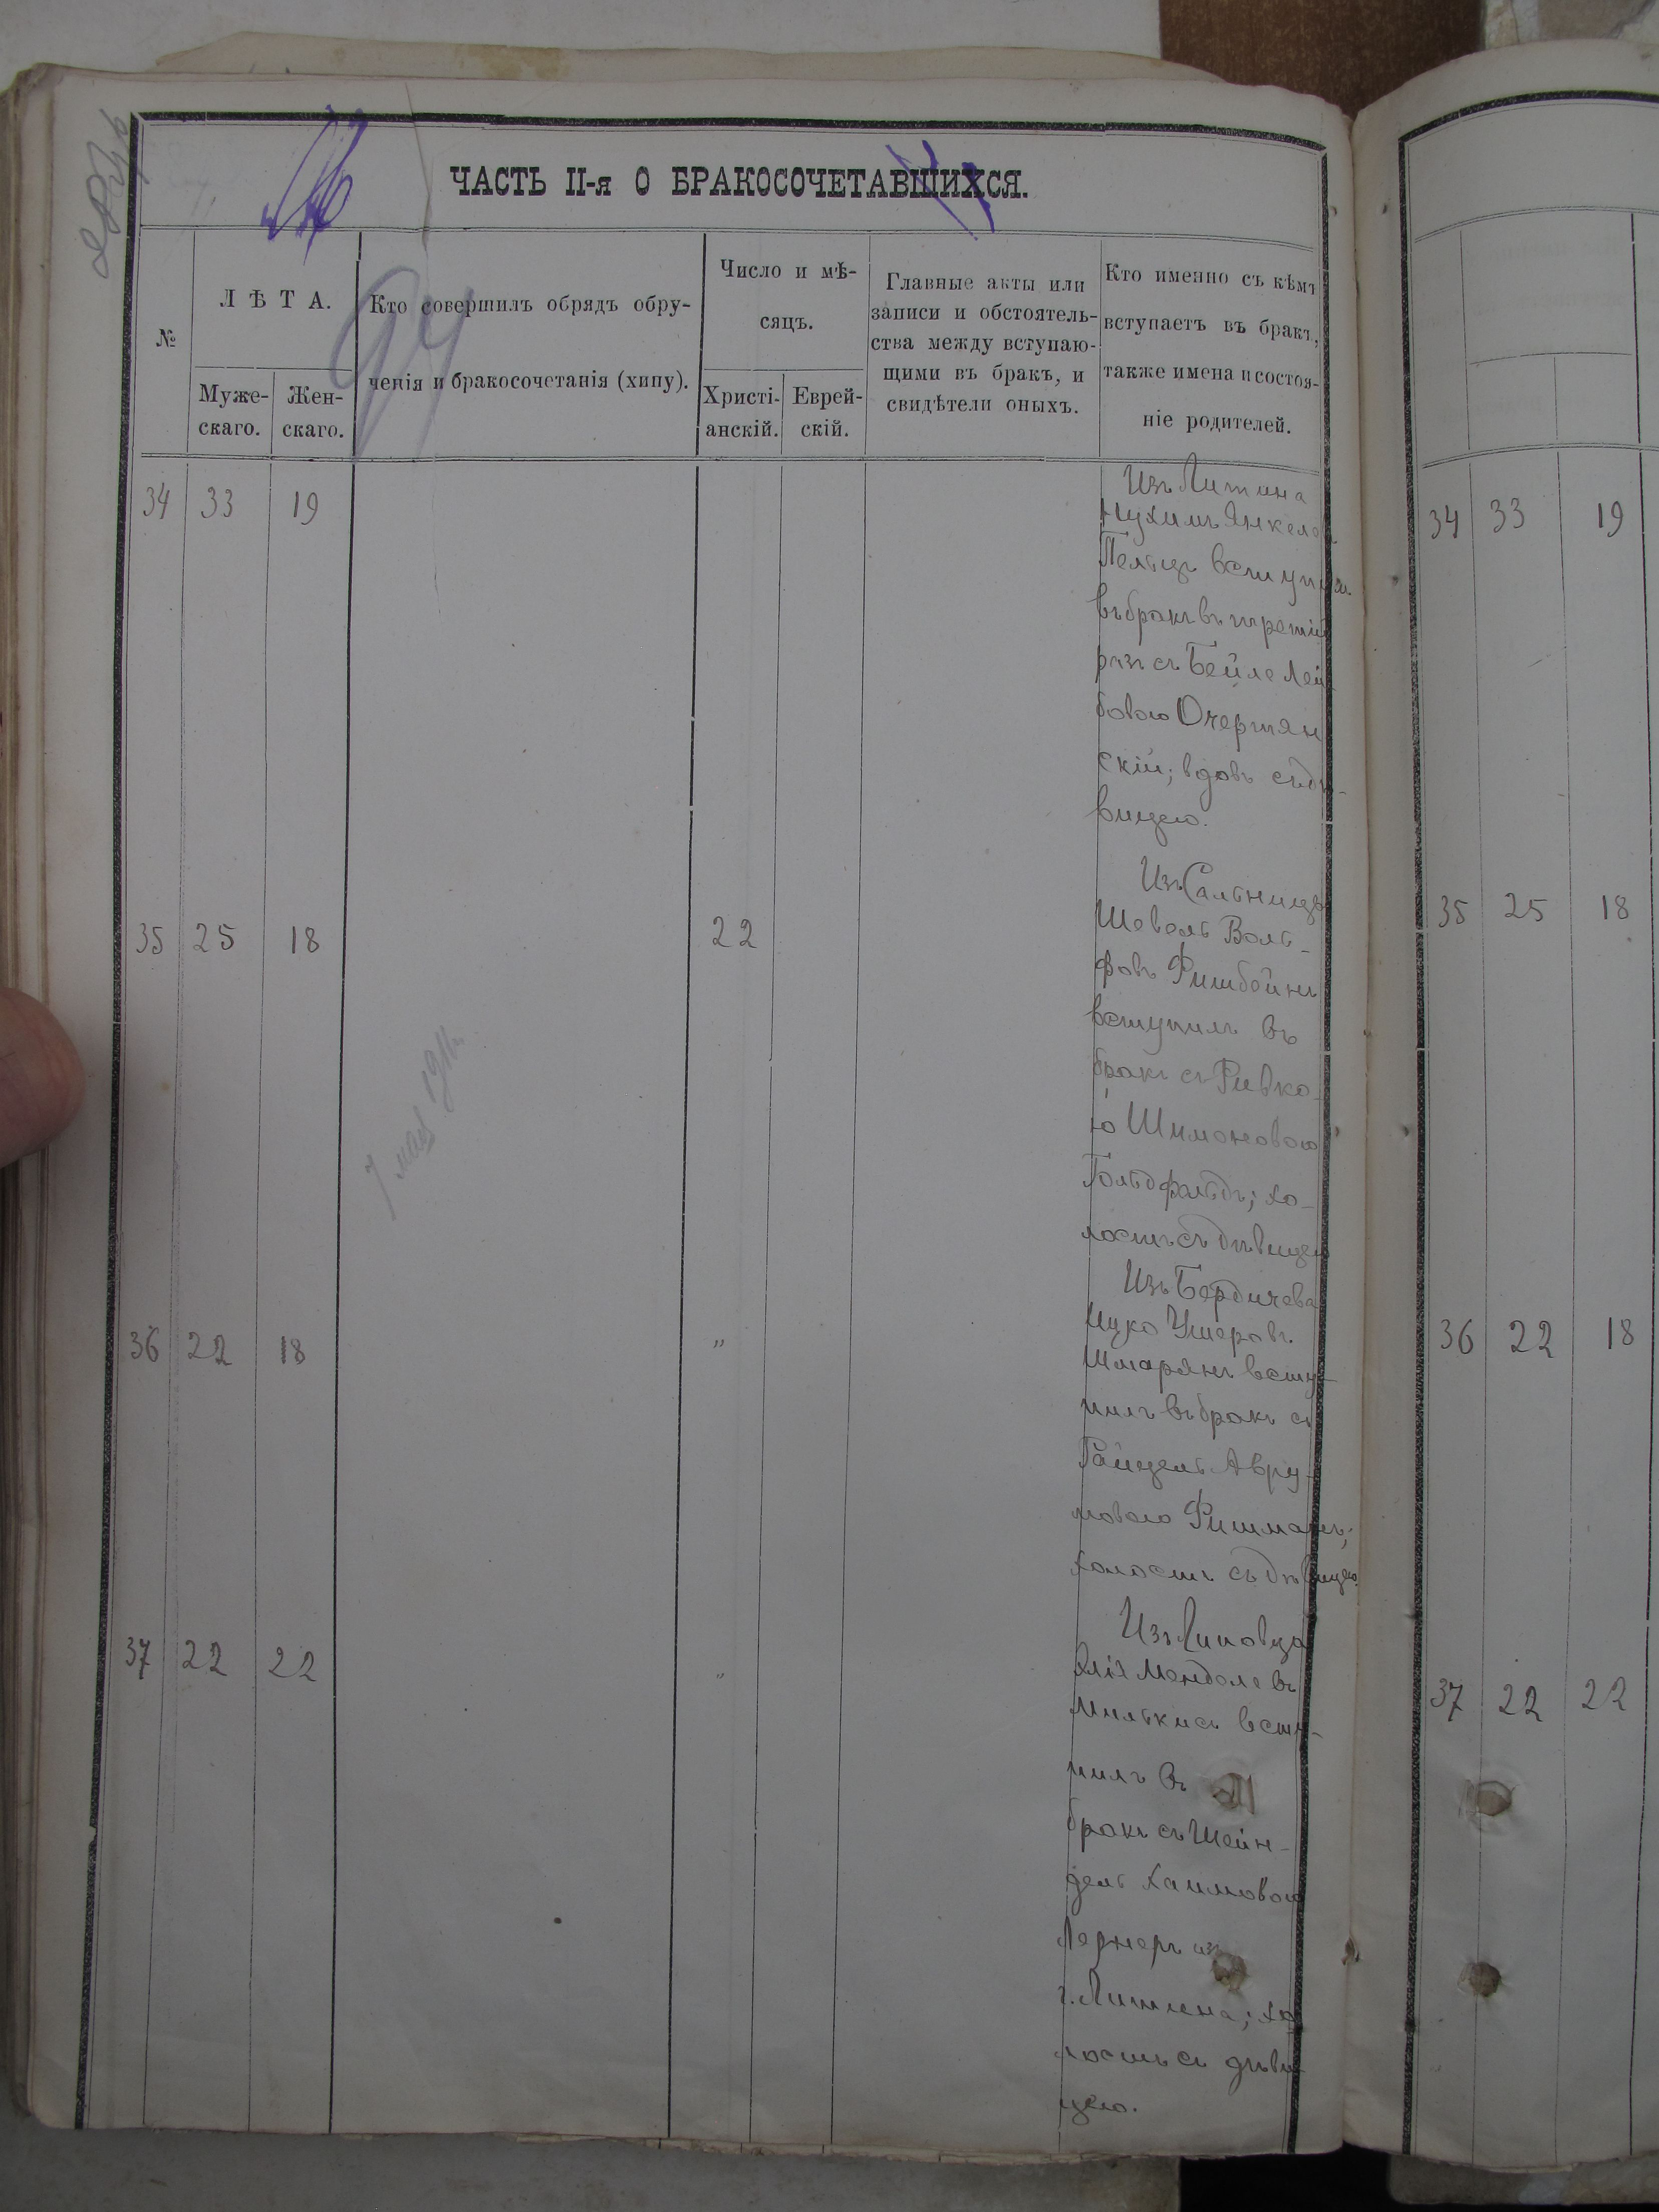 ЧАСТЬ II-я О БРАКОСОЧЕТАВШИХСЯ.
№
ЛѢТА.
Муже-
скаго.
Жен-
скаго.
Кто совершилъ обрядъ обру-
ченія и бракосочетанія (хипу).
Число и мѣ-
сяцъ.
Христі-
анскій.
Еврей-
скій.
Главные акты или
записи и обстоятель-
ства между вступаю-
щими въ бракъ, и
свидѣтели оныхъ.
Кто именно съ кѣмъ
вступаетъ въ бракъ,
также имена и состоя-
ніе родителей.
94
34 33 19
Изъ Литина
Нухимъ Янкелев
Пельцъ вступил
въ бракъ въ третій
разъ съ Бейле Лей
бовою Очертян
скій; вдовъ съ дѣ-
вицею.
35 25 18 22
Изъ Сальницы
Шевель Воль-
фовъ Фишбейнъ
вступилъ въ
бракъ съ Ривко-
ю Шимоновою
Гольдфельдъ; хо-
лостъ съ дѣвицею
7 мая 1911
36 22 18 "
Изъ Бердичева
Ицко Ушеровъ
Шмарянъ всту-
пилъ въ бракъ съ
Райцель Авру-
мовою Фишманъ;
холостъ съ дѣвицею.
37 22 22 "
Изъ Липовца
Элія Менделевъ
Милькисъ всту-
пилъ въ
бракъ съ Шейн-
дель Хаимовою
Лернеръ изъ
г. Литина; хо
лостъ съ дѣви-
цею.
34 33 19
35 25 18
36 22 18
37 22 22